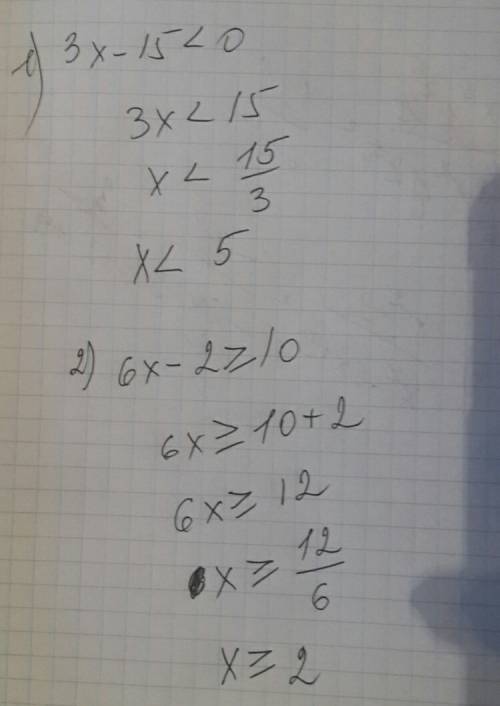 1) 3x - 15 < 0
3x < 15
x < 15/3
x < 5
2) 6x - 2 ≥ 10
6x ≥ 10 + 2
6x ≥ 12
x ≥ 12/6
x ≥ 2